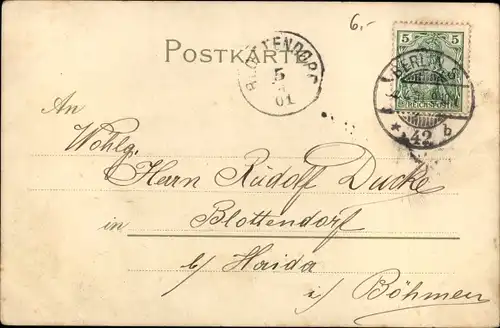 6.-
POSTKARTE
BLOTTENDORF
5
01
5 5
REICHSPOST
BERLIN, S
* 42 b
An
Wohlg.
Herrn Rudolf Ducke
in Blottendorf
b/ Haida
i/ Böhmen